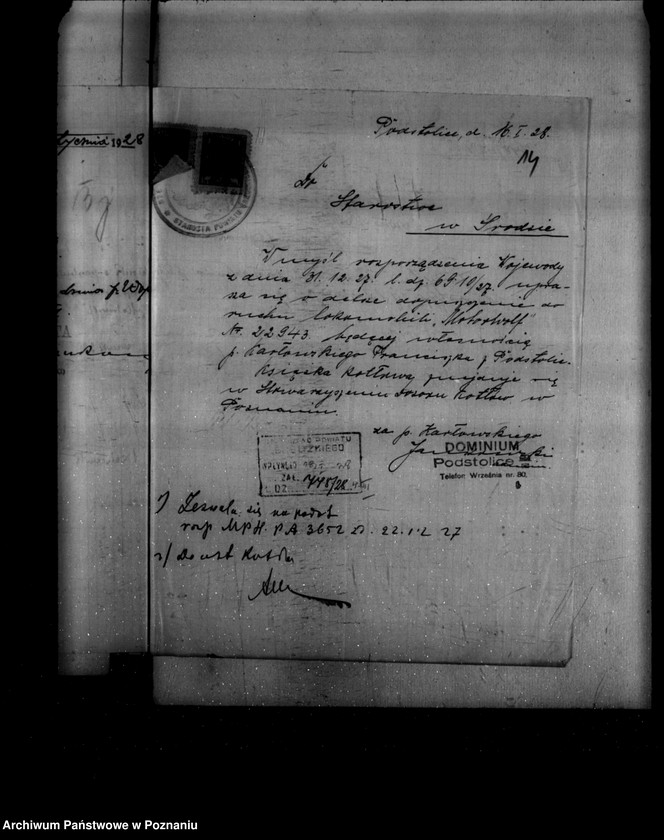 Podstolice, d. 16.I.28.
14
Do
Starostwa
w Środzie
W myśl rozporządzenia Wojewody
z dnia 31.12.27. l. dz. 6510/27 upra-
sza się o dalsze dopuszczenie do
ruchu lokomobili „Motorwolf"
Nr. 22943 będącej własnością
p. Karłowskiego Franciszka z Podstolic.
Książka kotłowa znajduje się
w Stowarzyszeniu Dozoru Kotłów w
Poznaniu.
za p. Karłowskiego
DOMINIUM
Podstolice
Telefon Września nr. 80.
POWIATU
WPŁYNĘŁO
ZAŁ.
L. DZ. 445/28
1) Zezwala się na podst
rozp MPH. PA 3652 22.12 27
2)
STAROSTA
1928
Archiwum Państwowe w Poznaniu